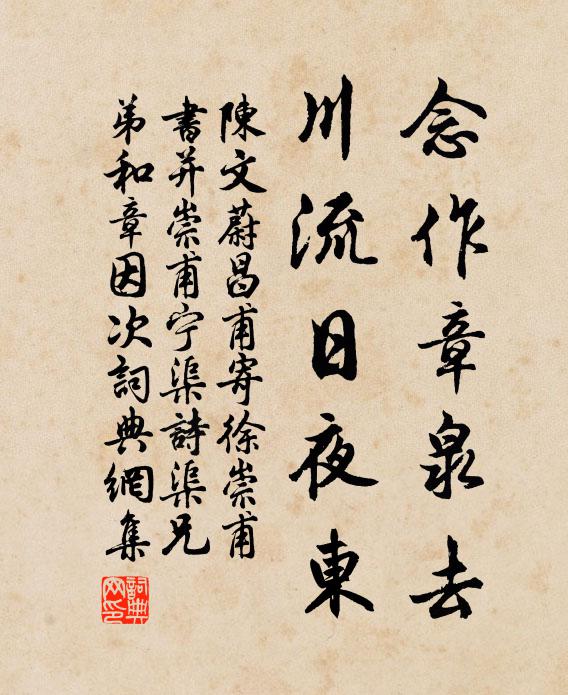 念作章泉去
川流日夜東
陳文蔚昌甫寄徐崇甫
書并崇甫寧渠詩渠兄
弟和章因次詞典網集
詞典網印